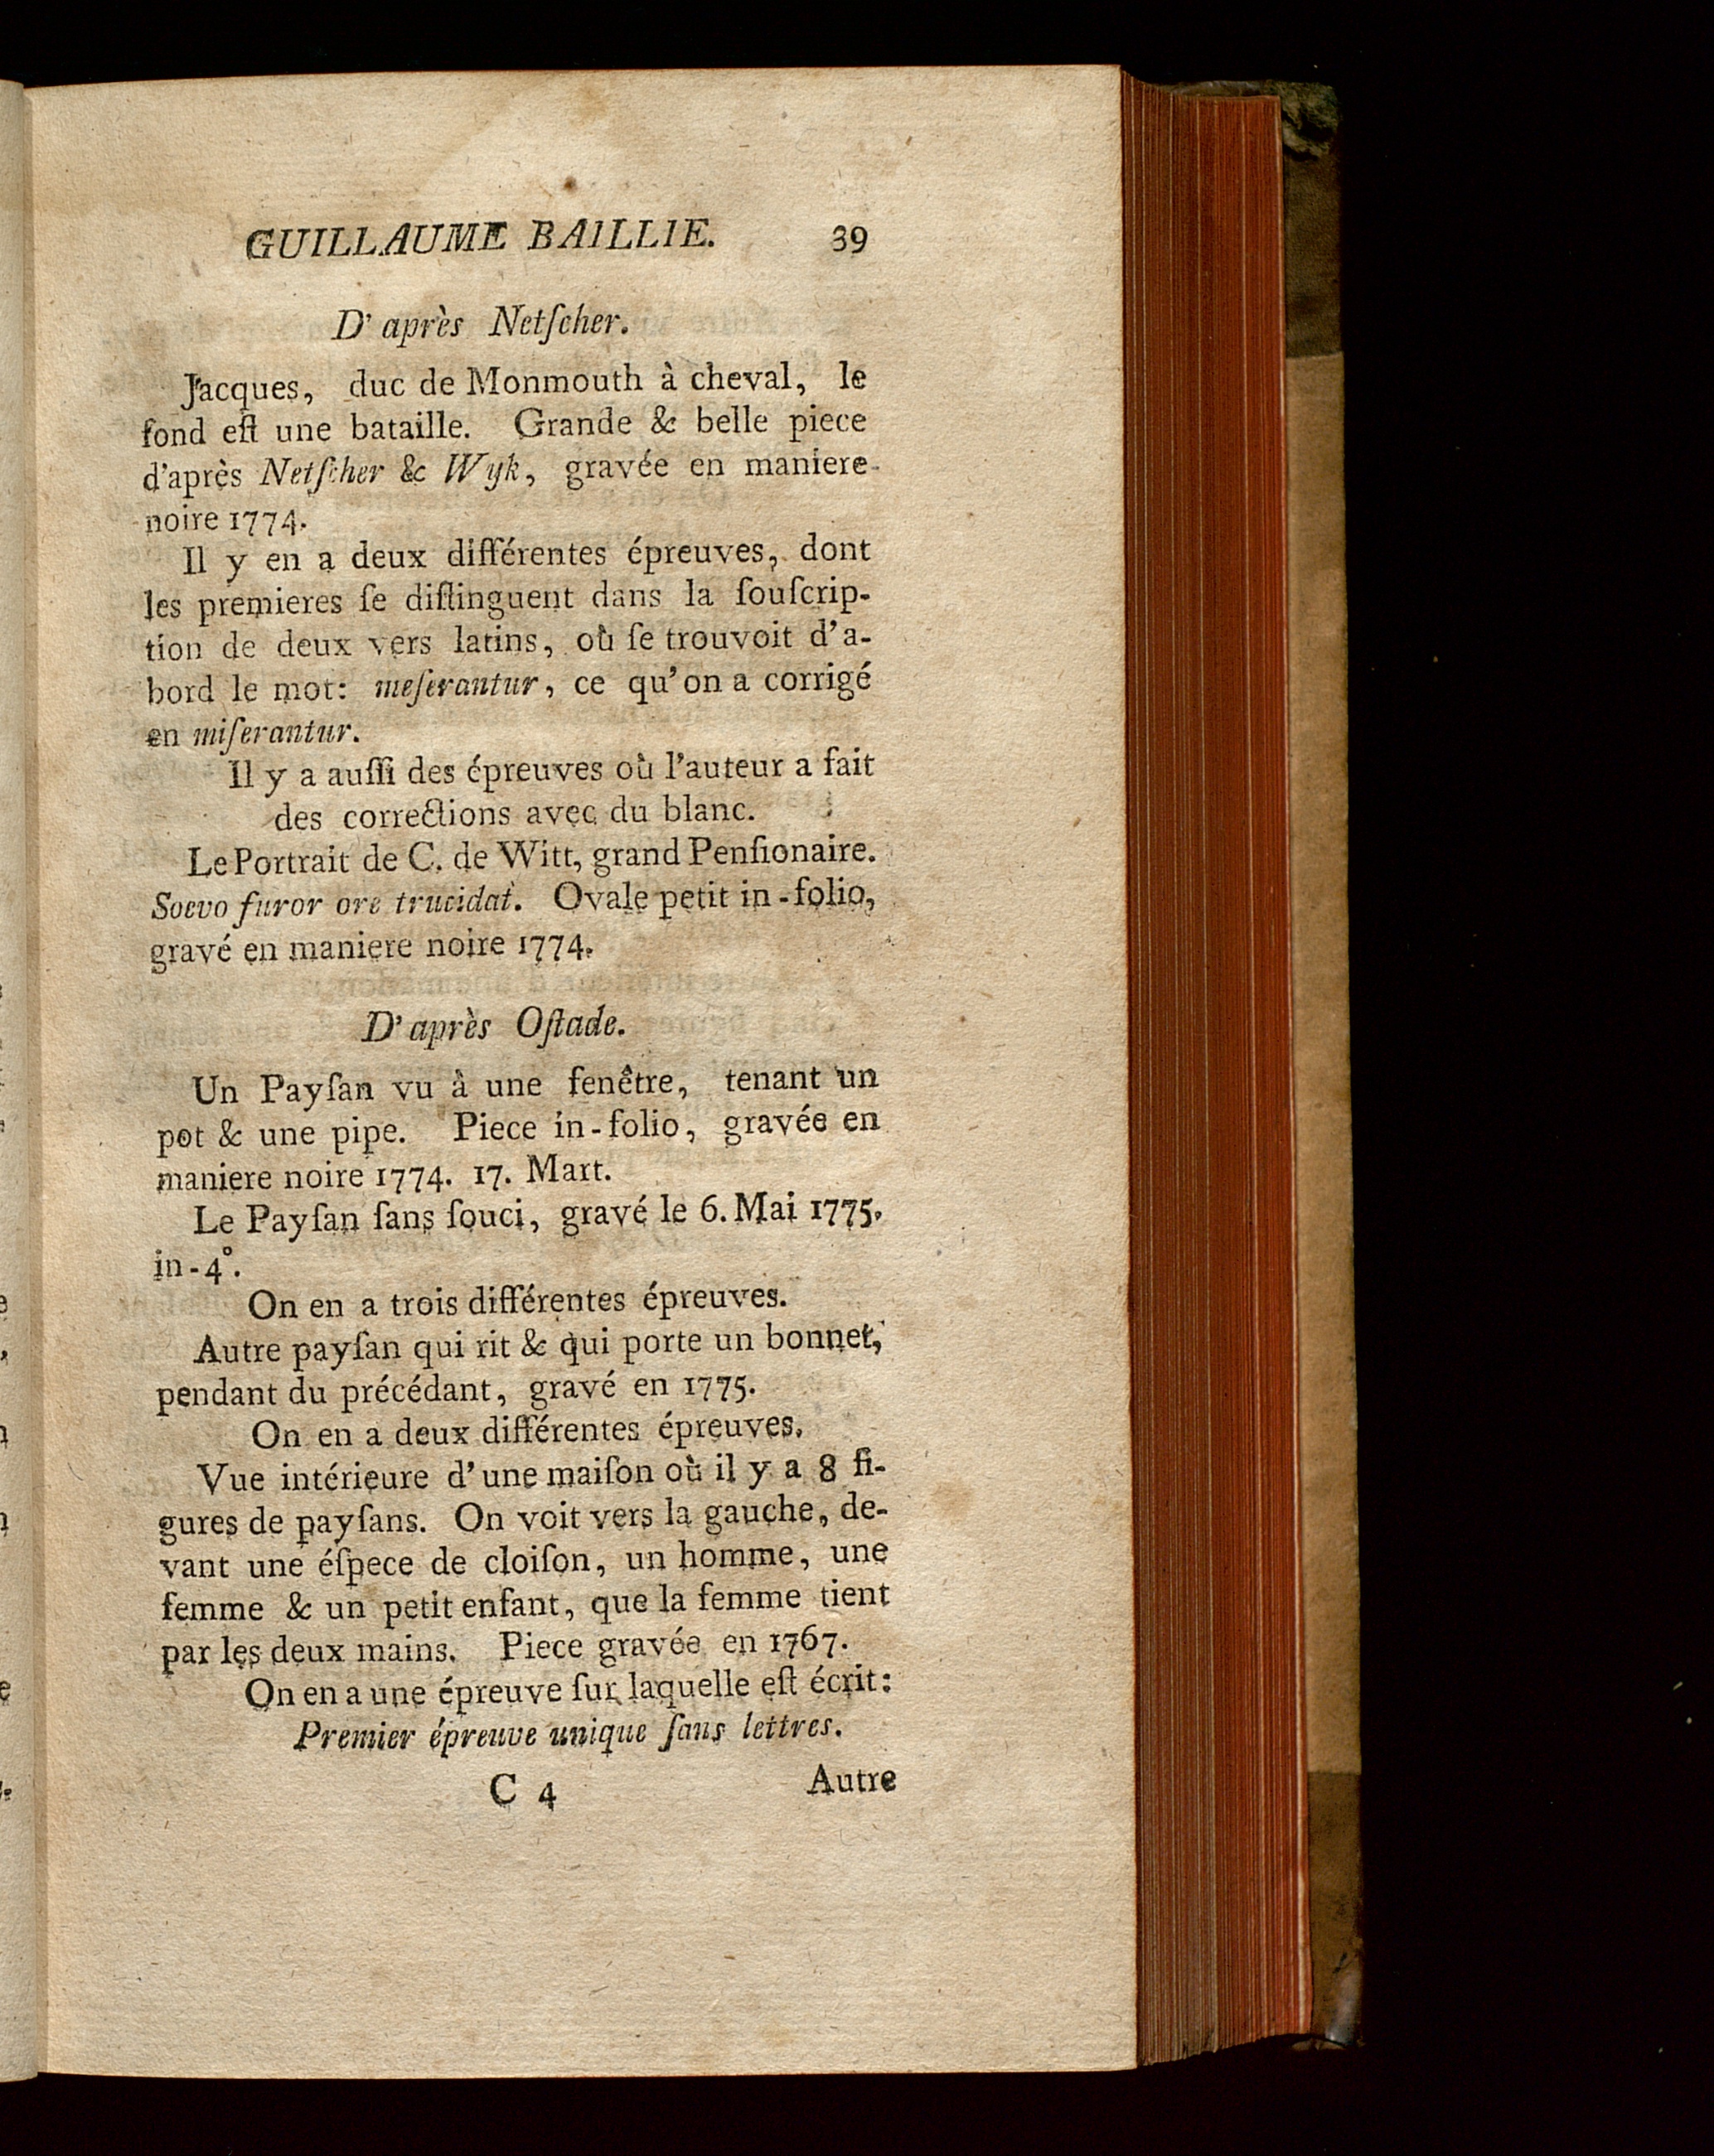 GUILLAUME BAILLIE. 39
D'après Netſcher.
Jacques, duc de Monmouth à cheval, le
fond eſt une bataille. Grande & belle piece
d'après Netſcher & Wyk, gravée en maniere
noire 1774.
Il y en a deux différentes épreuves, dont
les premieres ſe diſtinguent dans la ſouſcrip-
tion de deux vers latins, où ſe trouvoit d'a-
bord le mot: meſerantur, ce qu'on a corrigé
en miſerantur.
Il y a auſſi des épreuves où l'auteur a fait
des corrections avec du blanc.
Le Portrait de C. de Witt, grand Penſionaire.
Soevo furor ore trucidat. Ovale petit in-folio,
gravé en maniere noire 1774.
D'après Oſtade.
Un Payſan vu à une fenêtre, tenant un
pot & une pipe. Piece in-folio, gravée en
maniere noire 1774. 17. Mart.
Le Payſan ſans ſouci, gravé le 6. Mai 1775.
in-4°.
On en a trois différentes épreuves.
Autre payſan qui rit & qui porte un bonnet,
pendant du précédant, gravé en 1775.
On en a deux différentes épreuves.
Vue intérieure d'une maiſon où il y a 8 fi-
gures de payſans. On voit vers la gauche, de-
vant une éſpece de cloiſon, un homme, une
femme & un petit enfant, que la femme tient
par les deux mains. Piece gravée en 1767.
On en a une épreuve ſur laquelle eſt écrit:
Premier épreuve unique ſans lettres.
C 4 Autre